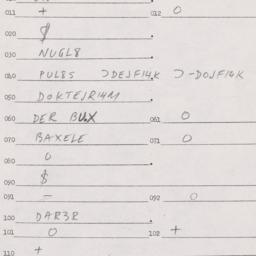 011 + 012 O
020 $
030 NUGL8
040 PUL8S ƆDEJFI4K Ɔ-DOJFI4K
050 DOKTEJRI4M
060 DER BUX 061 O
070 BAXELE 071 O
080 O
090 $
091 - 092 O
100 DAR3R
101 O 102 +
110 +